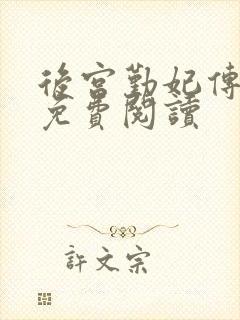 後宮勤妃傳
免費閱讀
許文宗